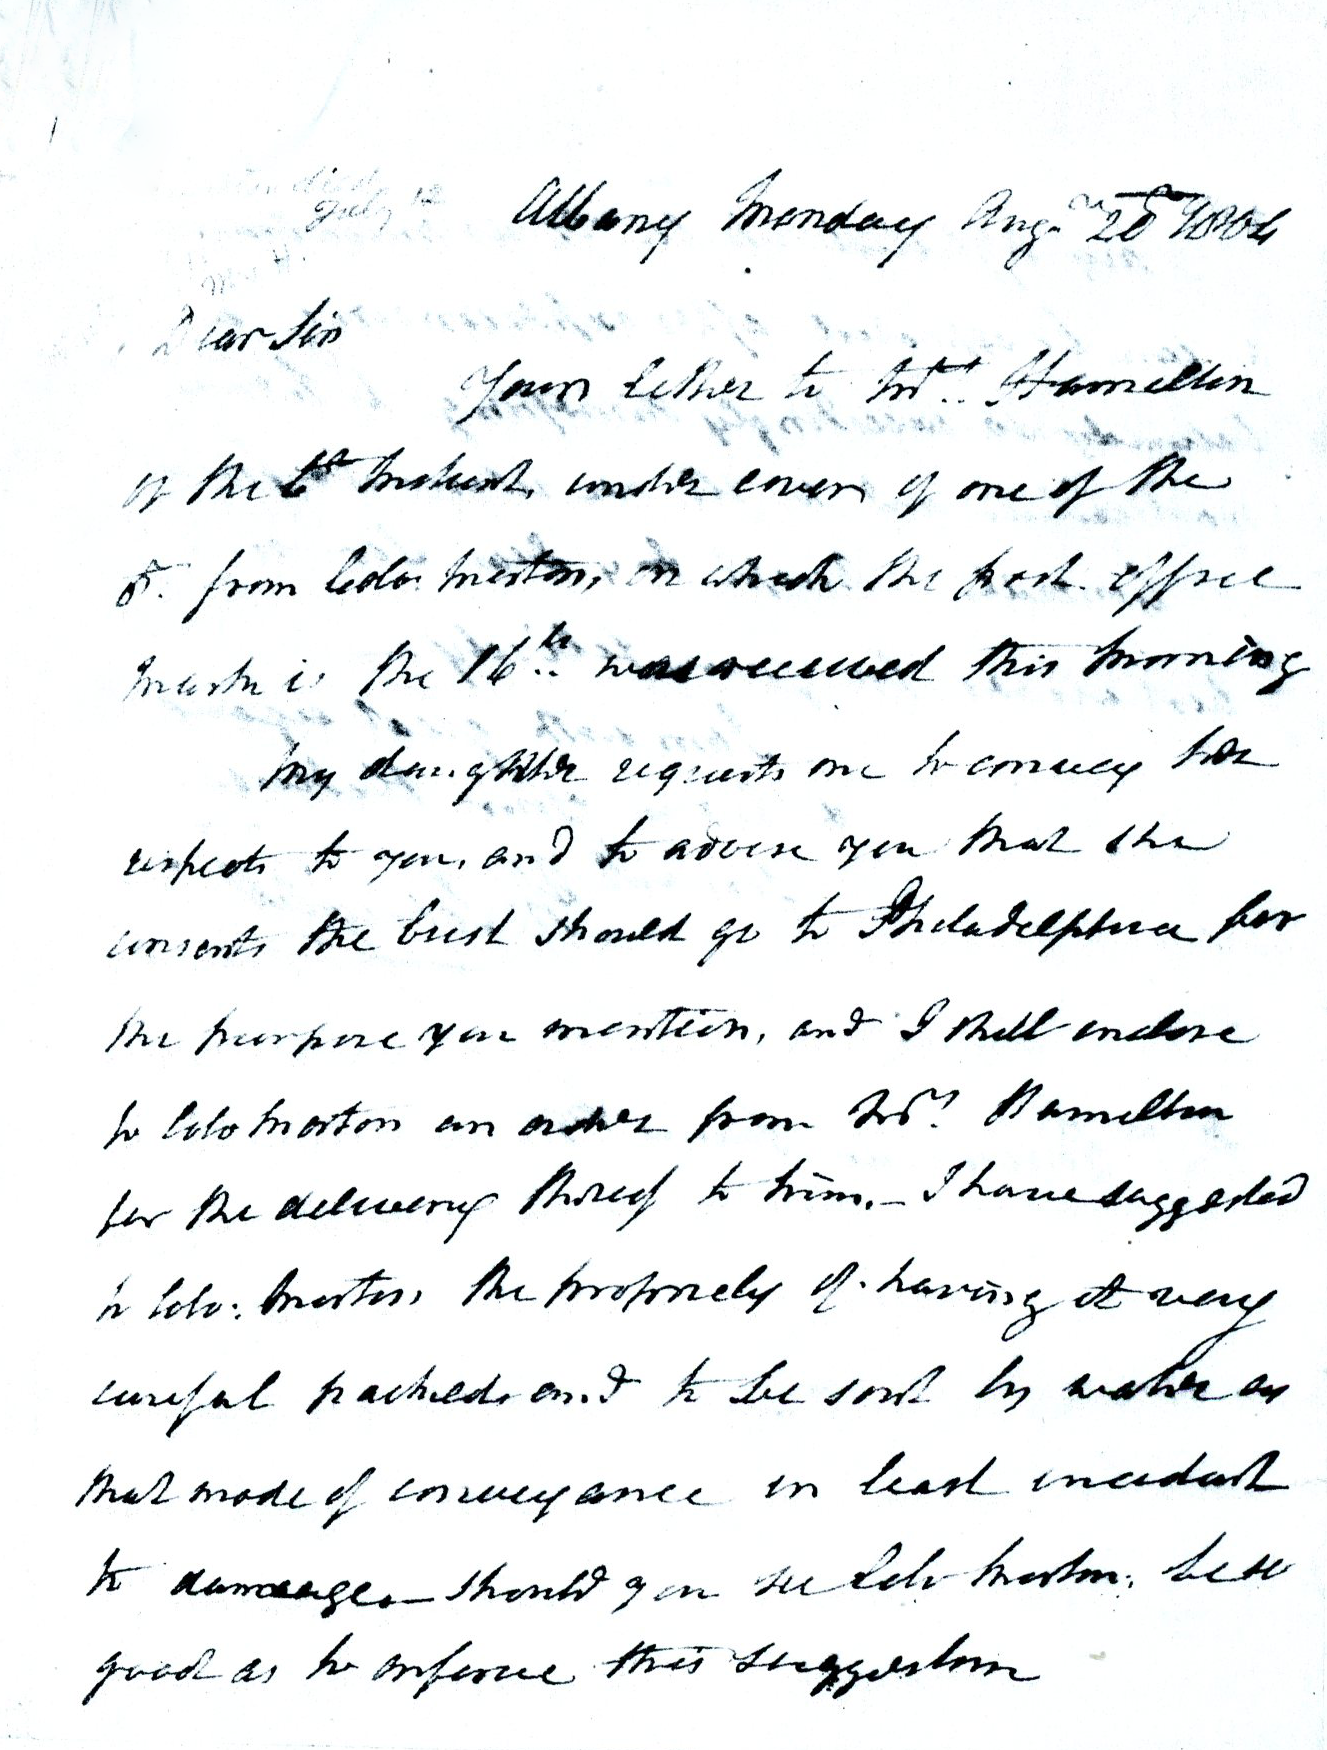 Albany Monday Augt 20th 1804
Dear Sir
Your letter to Mrs. Hamilton
of the 6th Instant, under cover of one of the
8th. from Colo: Morton, on which the post office
mark is the 16th. was received this morning
My daughter requests me to convey her
respects to you, and to advise you that she
consents the bust should go to Philadelphia for
the purpose you mention, and I shall enclose
to Colo Morton an order from Mrs. Hamilton
for the delivery thereof to him. – I have suggested
to Colo: Morton, the propriety of having it very
careful packed, and to be sent by water as
that mode of conveyance is least incident
to damage. – should you see Colo Morton, be so
good as to enforce this suggestion